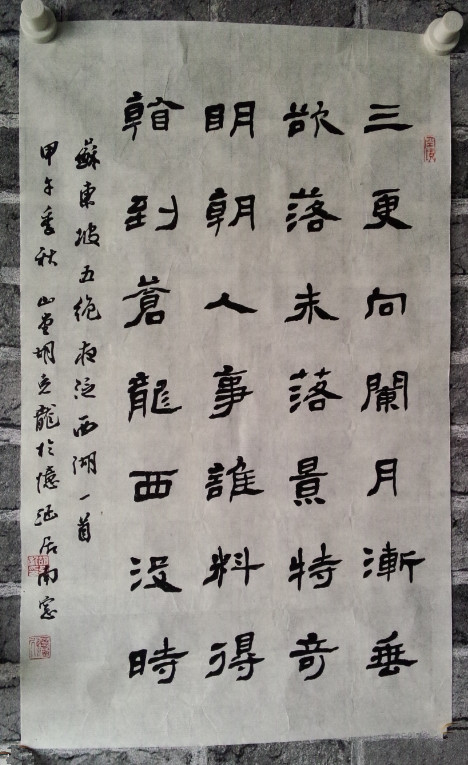 三更向闌月漸垂
欲落未落景特奇
眀朝人事誰料得
看到蒼龍西沒時
蘇東坡五絕夜泛西湖一首
甲午季秋 山堂胡 龍於憶 居南窓